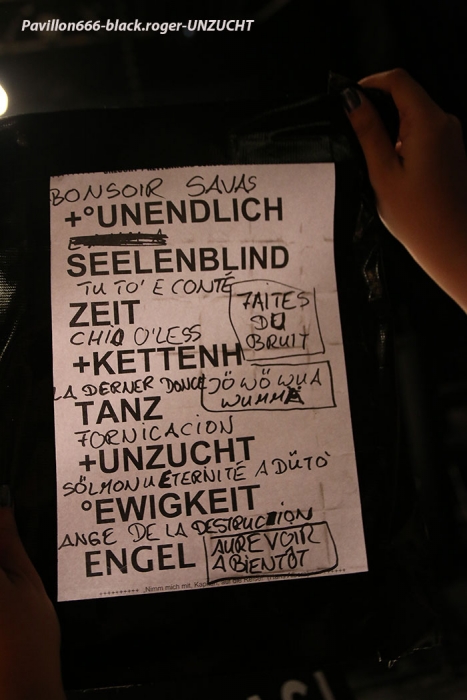 Pavillon666-black.roger-UNZUCHT
BONSOIR SAVAS
+°UNENDLICH
SEELENBLIND
TU TO' E CONTÉ
ZEIT
FAITES
DU
BRUIT
CHIA O'LESS
+KETTENH
LA DERNER DONCE
JÖ WÖ WUA
WUMMA
TANZ
FORNICACION
+UNZUCHT
SÖLMON U ETERNITÉ A DÜTO
°EWIGKEIT
ANGE DE LA DESTRUCTION
ENGEL
AUREVOIR
A BIENTÔT
Nimm mich mit,